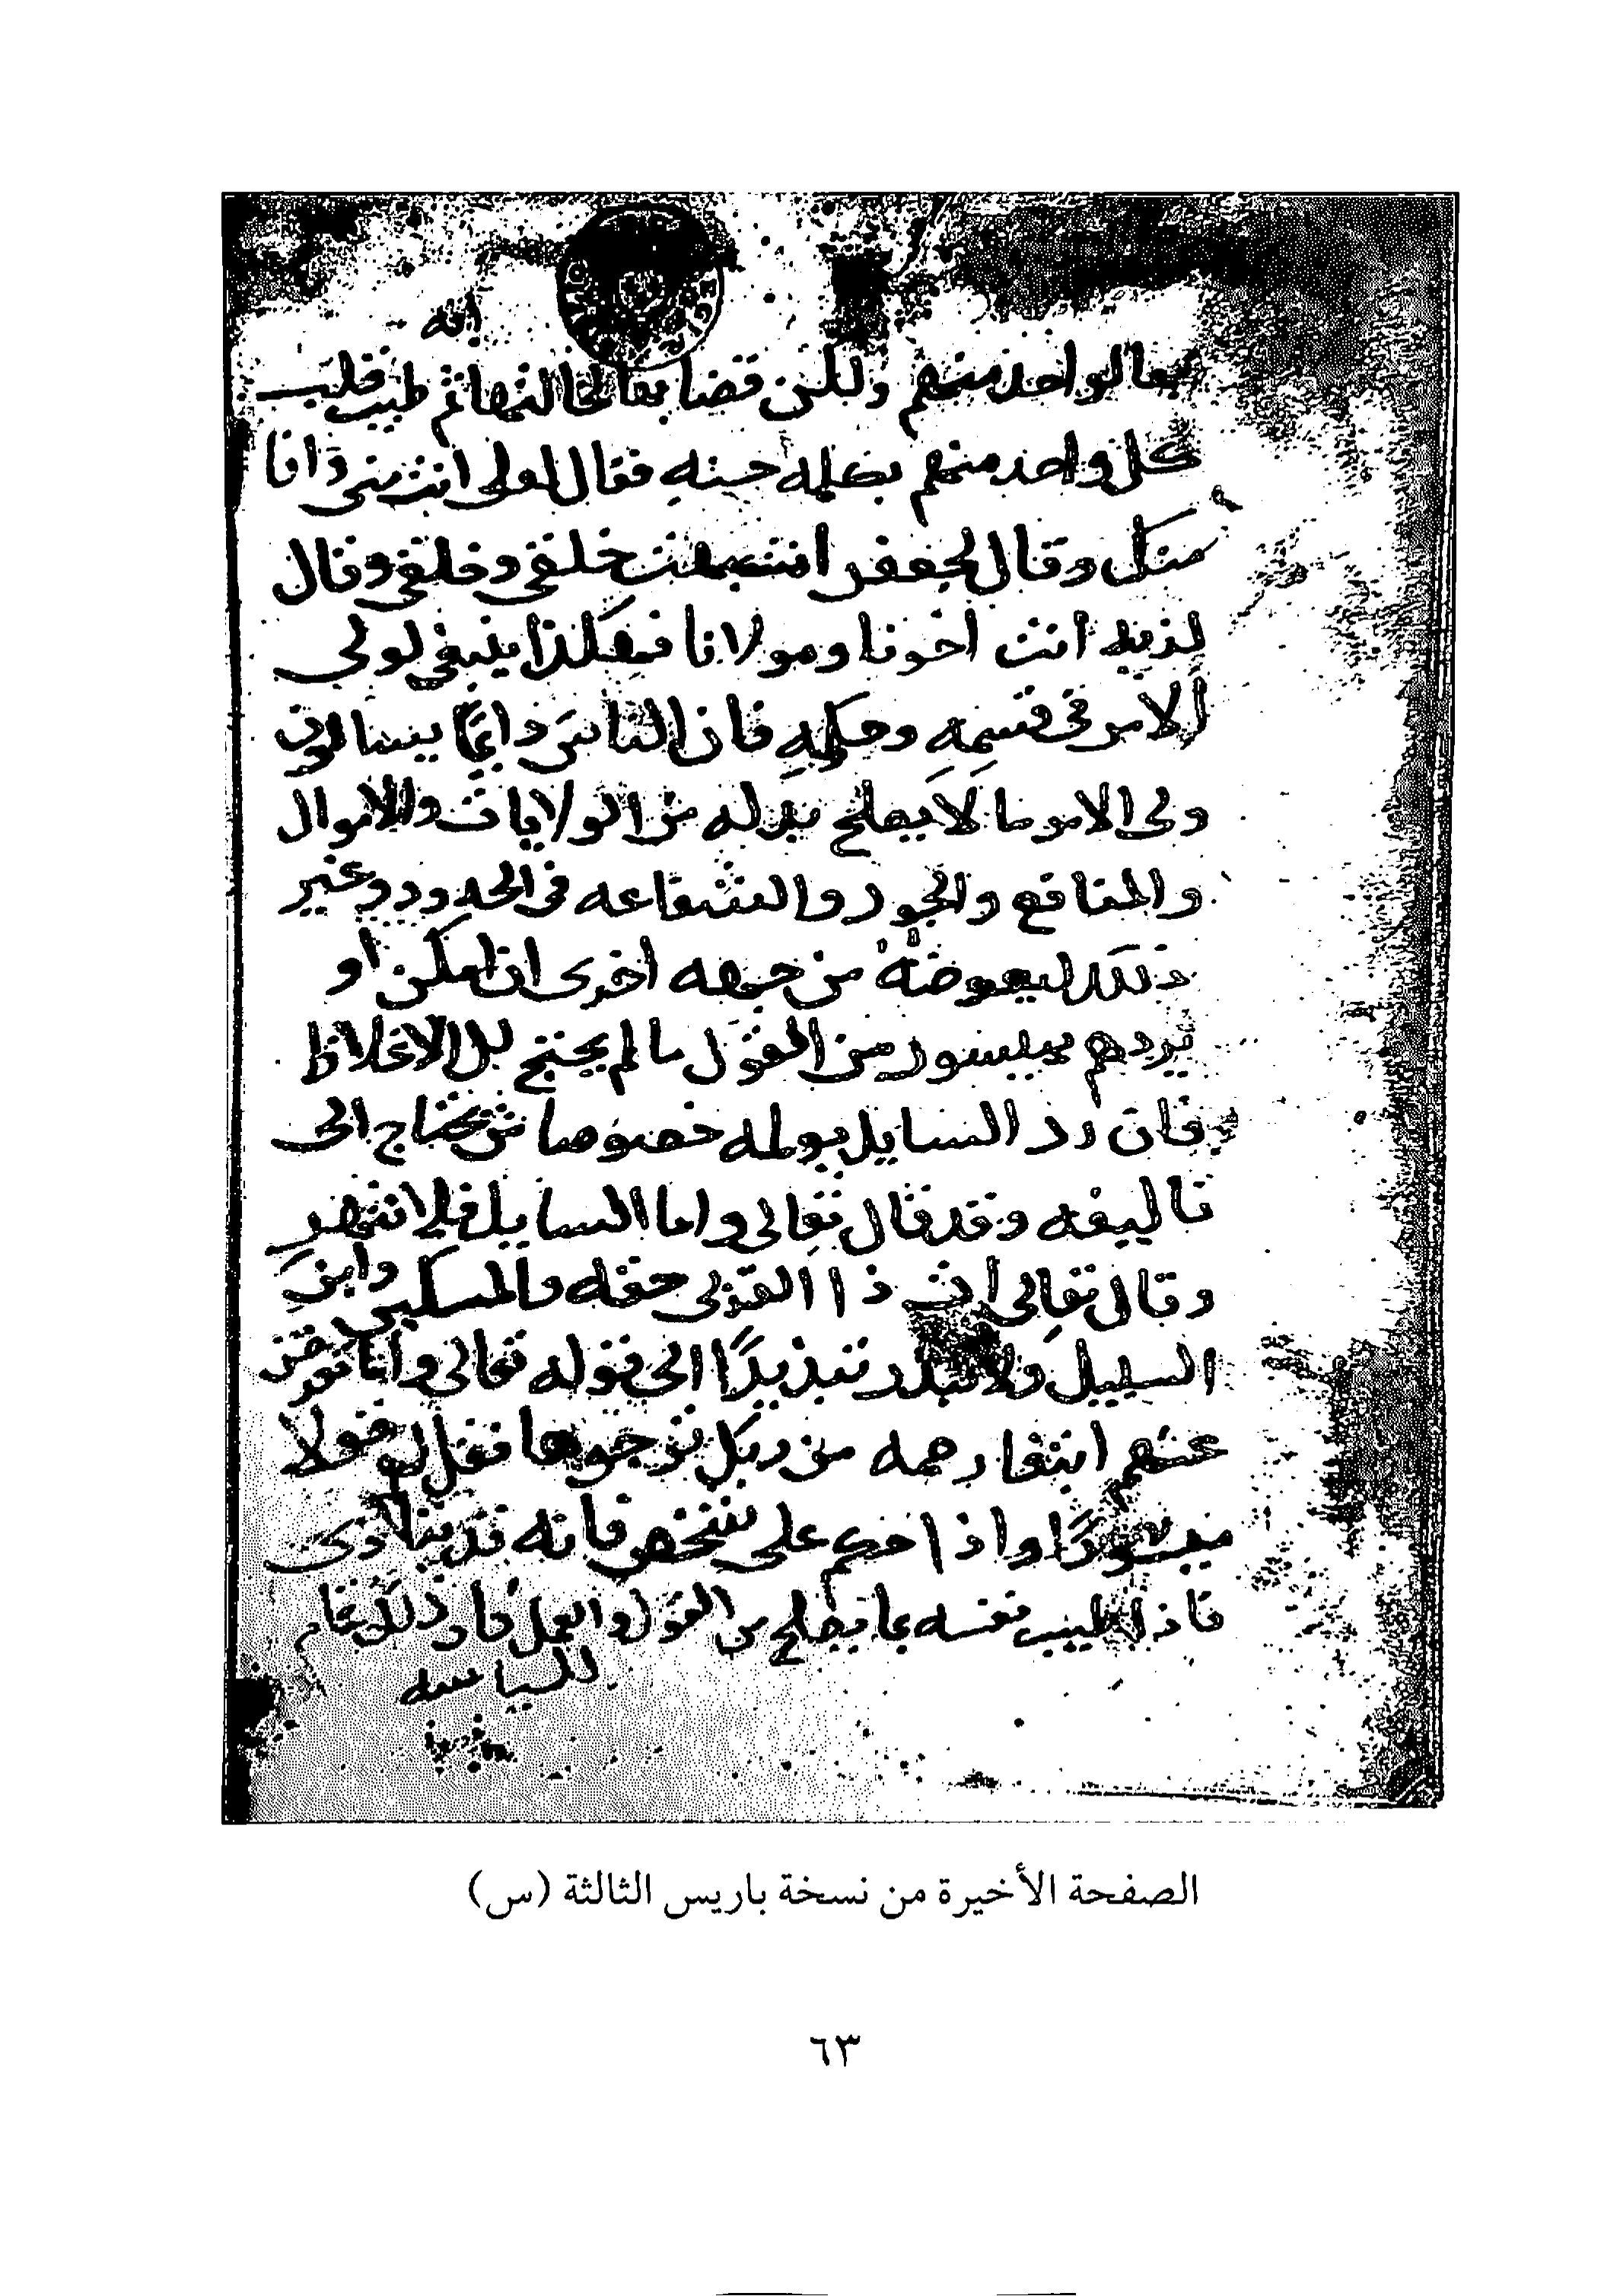 بها لواحد منهم ولكن قضا بها لخالتها ثم طيب قلب
كل واحد منهم بكلمة حسنه فقال لعلى انت منى وانا
منك وقال لجعفر اشبهت خلقي وخلقي وقال
لزيد انت اخونا ومولانا فهكذا ينبغي لولي
الامر في قسمه وحكمه فان الناس دايما يسالون
ولى الامر ما لا يصلح بذله من الولايات والاموال
والمنافع والجود والشفاعه في الحدود وغير
ذلك ليعوضه من جهه اخرى ان امكن او
يردهم بميسور من القول ما لم يحتج الاغلاظ
فان رد السايل يولمه خصوصا من يحتاج الى
تاليفه وقد قال تعالى واما السايل فلا تنهر
وقال تعالى ات ذا القربى حقه والمسكين وابن
السبيل ولا تبذر تبذيرًا الى قوله تعالى واما تعرضن
عنهم ابتغا رحمه من ربك ترجوها فقل لهم قولا
ميسورًا واذا حكم على شخص فانه قد يتاذى
فاذا طيب نفسه بما يصلح من القول والعمل كان ذلك تمام
للسياسه
الصفحة الأخيرة من نسخة باريس الثالثة (س)
٦٣